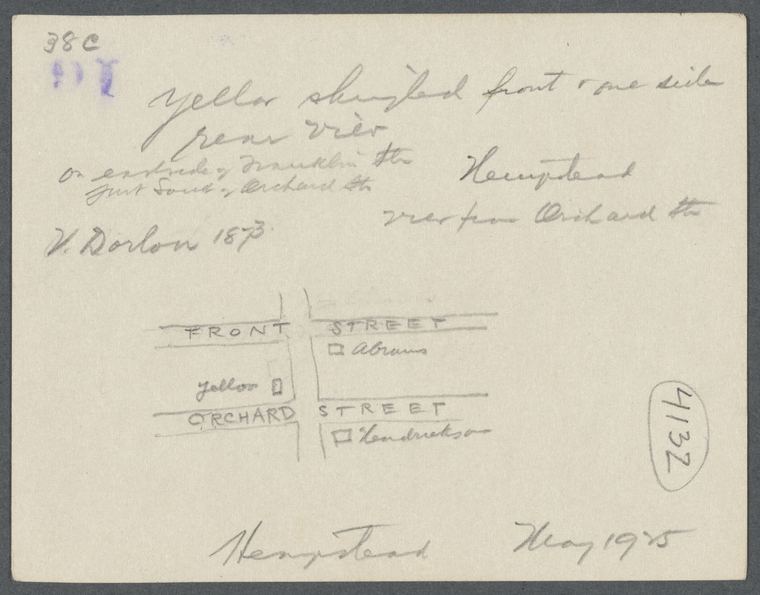 38C
Yellow shingled front & one side
rear view
on east side of Franklin St
just South of Orchard St
Hempstead
view from Orchard St
V. Dorlon 1873
FRONT STREET
Abrams
Yellow
ORCHARD STREET
Hendrickson
4132
Hempstead May 1925